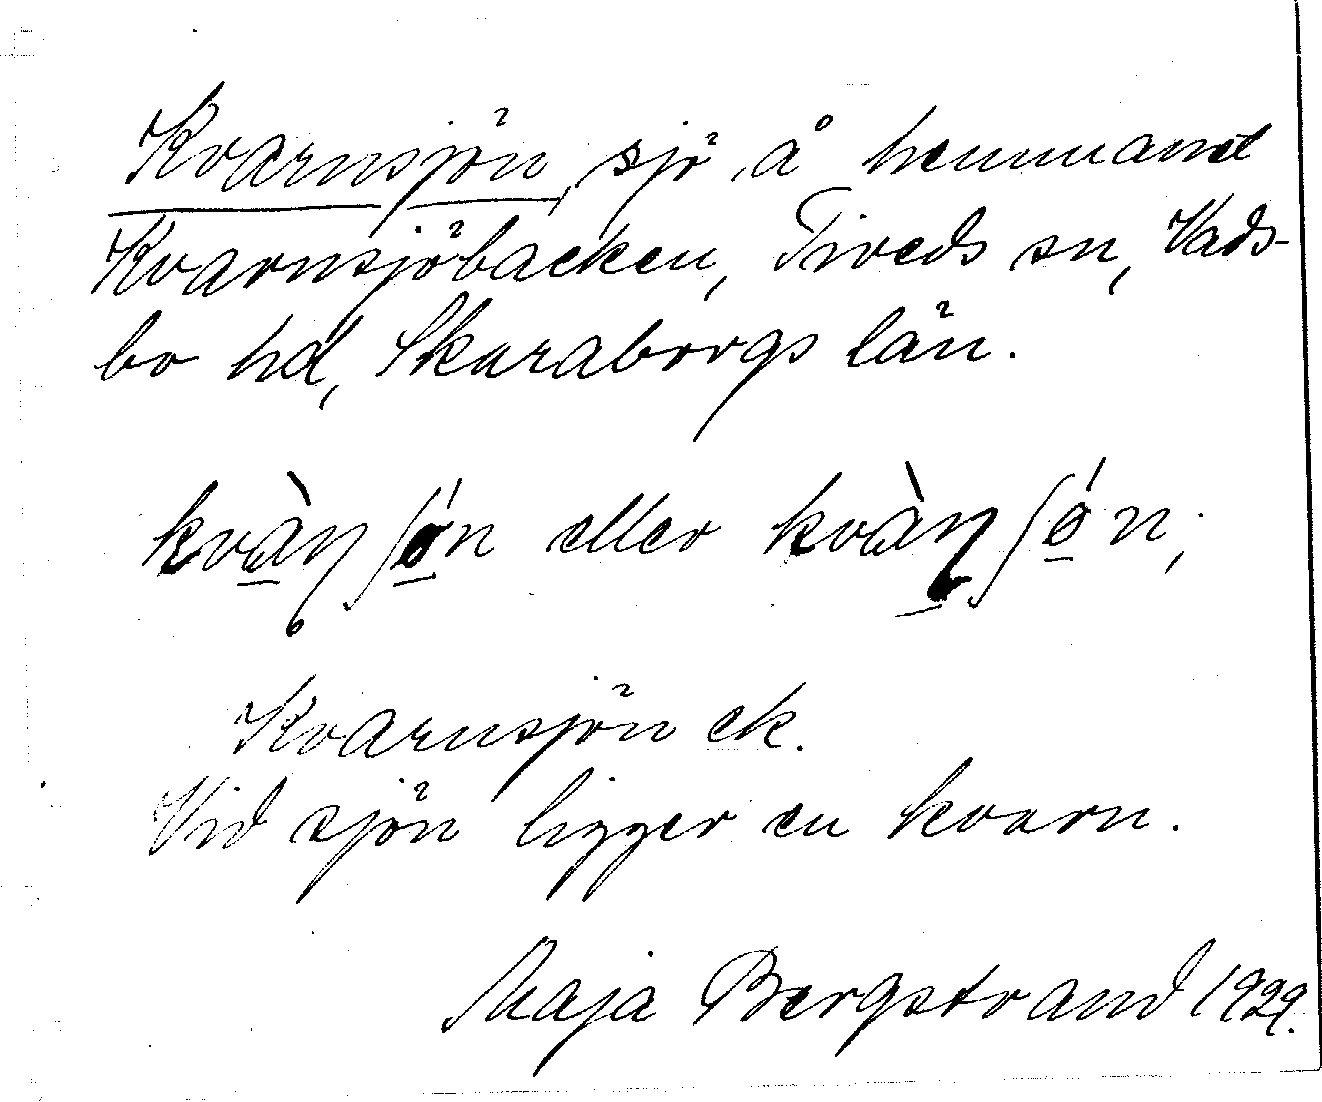 Kvarnsjön, sjö å hemmanet
Kvarnsjöbacken, Tiveds sn, Vads-
bo hd, Skaraborgs län.
kvàɳʃǿn eller kvàɳʃǿn;
Kvarnsjön ek.
Vid sjön ligger en kvarn.
Maja Bergstrand 1929.